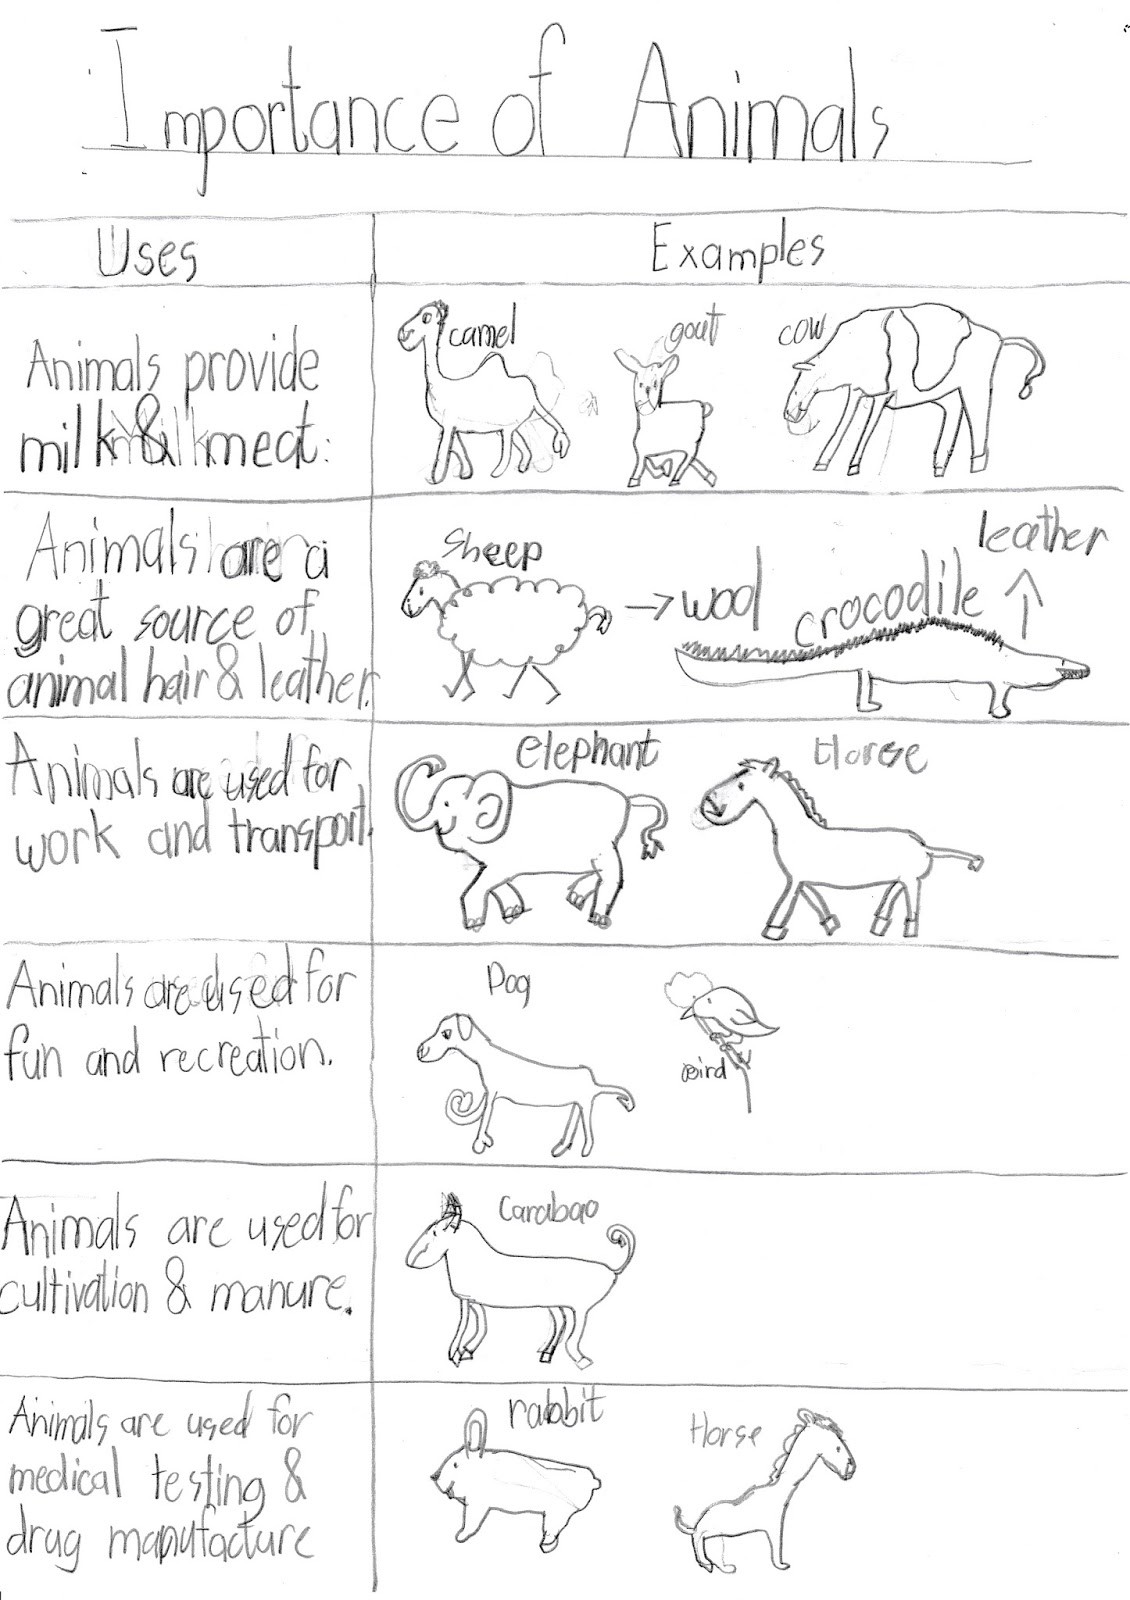 Importance of Animals
Uses
Examples
Animals provide
milk & meat.
camel
goat
cow
Animals are a
great source of
animal hair & leather.
sheep
wool
crocodile
leather
Animals are used for
work and transport.
elephant
Horse
Animals are used for
fun and recreation.
Dog
Bird
Animals are used for
cultivation & manure.
Carabao
Animals are used for
medical testing &
drug manufacture
rabbit
Horse